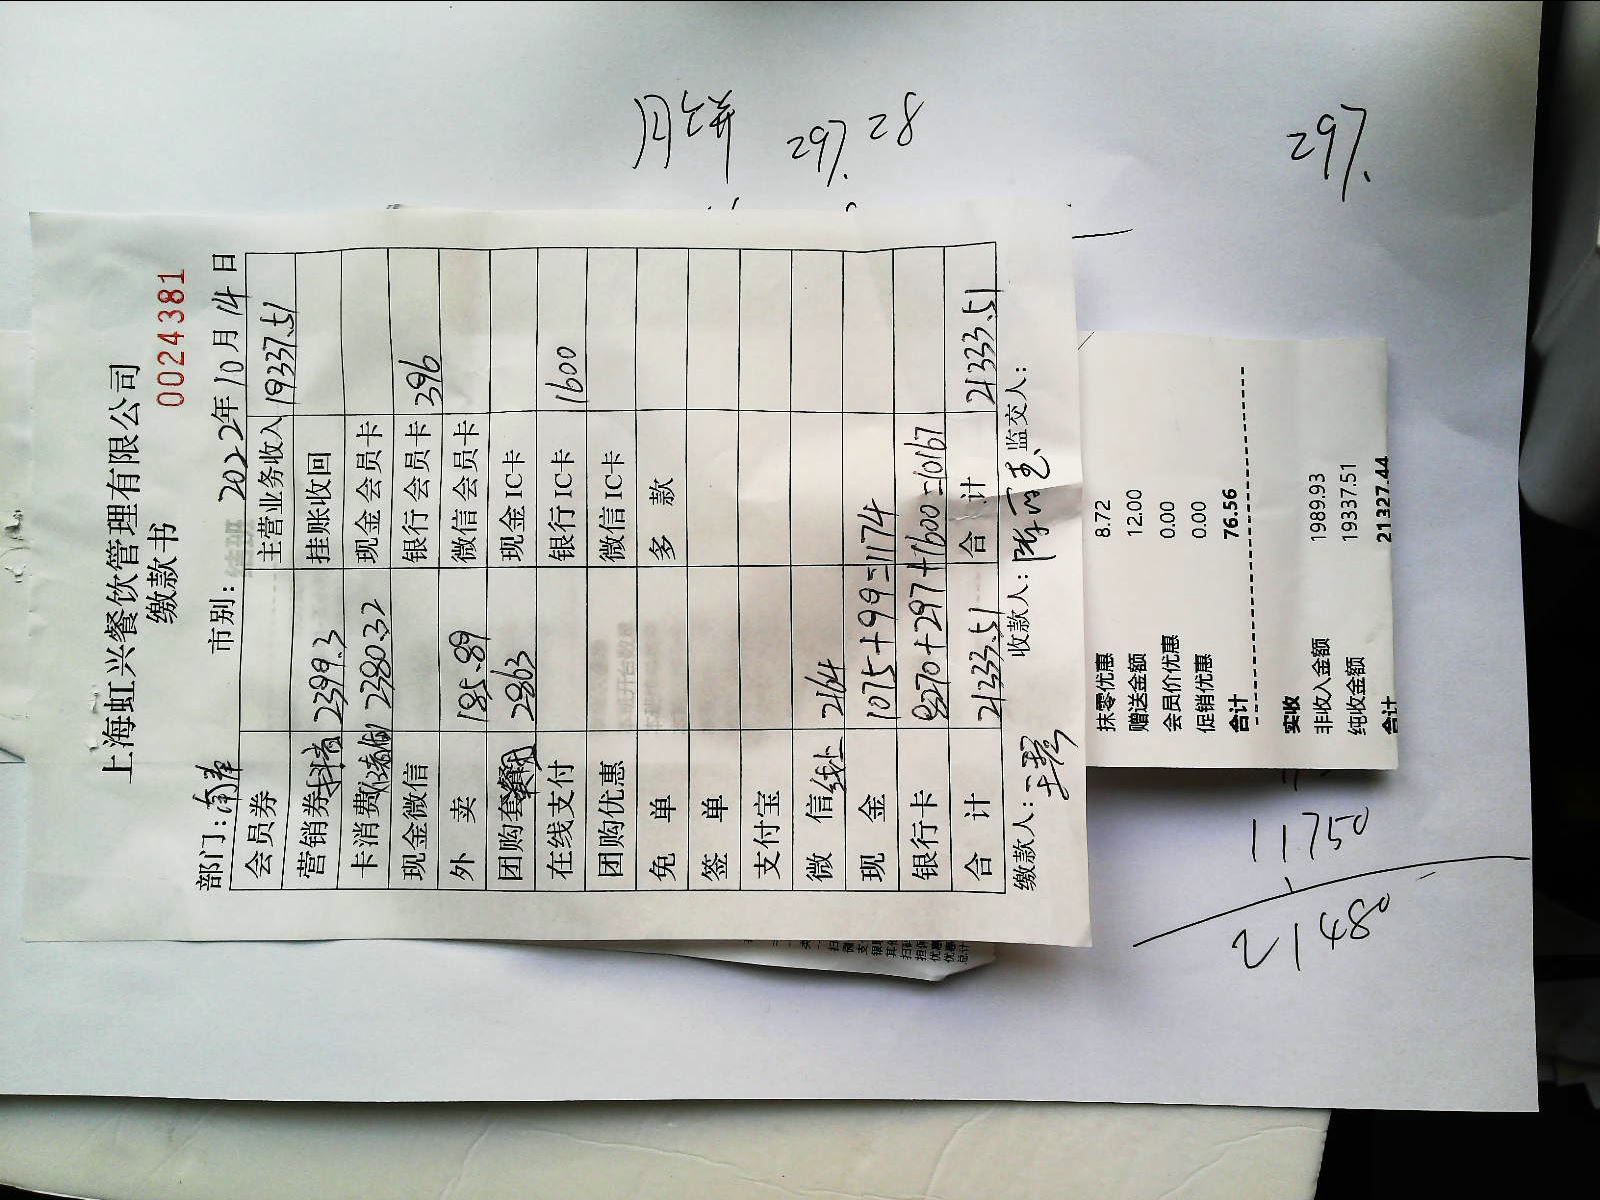 月饼 297.28
297.
上海虹兴餐饮管理有限公司
缴款书
0024381
部门: 市别: 2022年10月14日
会员券 主营业务收入 19337.51
营销券抖音 2399.3 挂账收回
卡消费 2380.32 现金会员卡
现金微信 银行会员卡 396
外 卖 185.89 微信会员卡
团购套餐 2863 现金IC卡
在线支付 银行IC卡 1600
团购优惠 微信IC卡
免 单 多 款
签 单
支付宝
微 信线上 2164
现 金 1075+99=1174
银行卡 8270+297+1600=10167
合 计 21333.51 合 计 21333.51
缴款人: 收款人: 监交人:
抹零优惠 8.72
赠送金额 12.00
会员价优惠 0.00
促销优惠 0.00
合计 76.56
实收
非收入金额 1989.93
纯收金额 19337.51
合计 21327.44
11750
21480